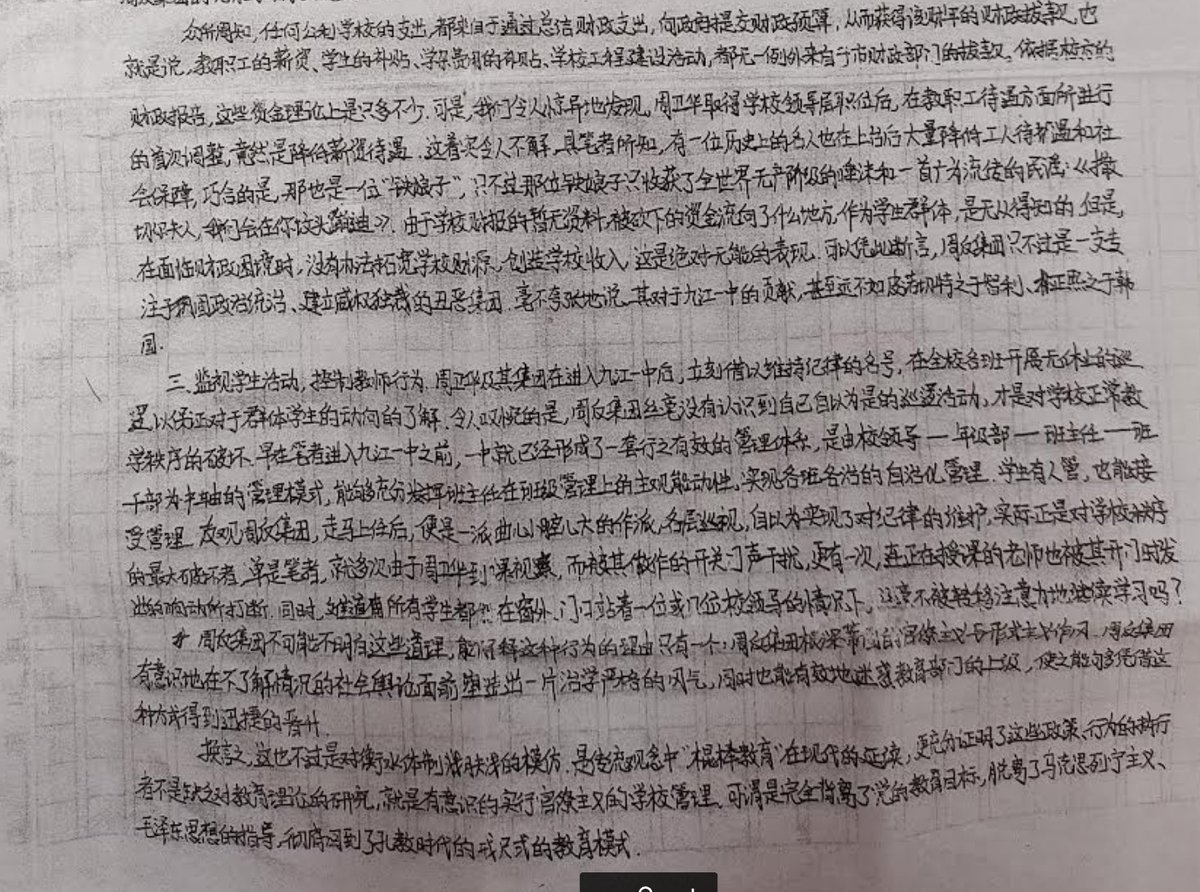 众所周知,任何公利学校的支出,都来自于通过总结财政支出,向政府提交财政预算,从而获得该财年的财政拨款,也
就是说,教职工的薪资、学生的补贴、学杂费用的补贴、学校工程建设活动,都无一例外来自于市财政部门的拨款,依据校方的
财政报告,这些资金理论上是只多不少.可是,我们令人惊异地发现,周卫华取得学校领导层职位后,在教职工待遇方面所进行
的首次调整,竟然是降低薪资待遇.这着实令人不解.具笔者所知,有一位历史上的名人也在上台后大量降低工人待遇和社
会保障,巧合的是,那也是一位“铁娘子”,只不过那位铁娘子只收获了全世界无产阶级的唾沫和一首广为流传的民谣:《撒
切尔夫人,我们会在你坟头蹦迪》.由于学校财报的暂无资料,被砍下的资金流向了什么地方,作为学生群体,是无从得知的.但是,
在面临财政困境时,没有办法拓宽学校财源,创造学校收入,这是绝对无能的表现.可以凭此断言,周反集团只不过是一支专
注于巩固政治统治、建立威权独裁的丑恶集团.毫不夸张地说,其对于九江一中的贡献,甚至远不如皮诺切特之于智利、朴正熙之于韩
国.
三.监视学生活动,控制教师行为.周卫华及其集团在进入九江一中后,立刻借以维持纪律的名号,在全校各班开展无休止的巡
逻,以保证对于群体学生的动向的了解.令人叹惋的是,周反集团丝毫没有认识到自己自以为是的巡逻活动,才是对学校正常教
学秩序的破坏.早在笔者进入九江一中之前,一中就已经形成了一套行之有效的管理体系,是由校领导—年级部—班主任—班
干部为中轴的管理模式,能够充分发挥班主任在班级管理上的主观能动性,实现各班各治的自治化管理.学生有人管,也能接
受管理.反观周反集团,走马上任后,便是一派曲心腔大的作派,各层巡视,自以为实现了对纪律的维护,实际正是对学校秩序
的最大破坏者.单是笔者,就多次由于周卫华到课视察,而被其做作的开关门声干扰,更有一次,连正在授课的老师也被其开门时发
出的响动所打断.同时,难道有所有学生都在窗外、门口站着一位或几位校领导的情况下,还毫不被转移注意力地继续学习吗?
周反集团不可能不明白这些道理,能解释这种行为的理由只有一个:周反集团根深蒂固的官僚主义与形式主义作风.周反集团
有意识地在不了解情况的社会舆论面前塑造出一片治学严格的风气,同时也能有效地迷惑教育部门的上级,使之能够凭借这
种方式得到迅捷的晋升.
换言之,这也不过是对衡水体制浅肤浅的模仿.是传统观念中“棍棒教育”在现代的延续,更充分证明了这些政策、行为的执行
者不是缺乏对教育理论的研究,就是有意识的实行官僚主义的学校管理.可谓是完全背离了党的教育目标,脱离了马克思列宁主义、
毛泽东思想的指导,彻底回到了孔教时代的戒尺式的教育模式.